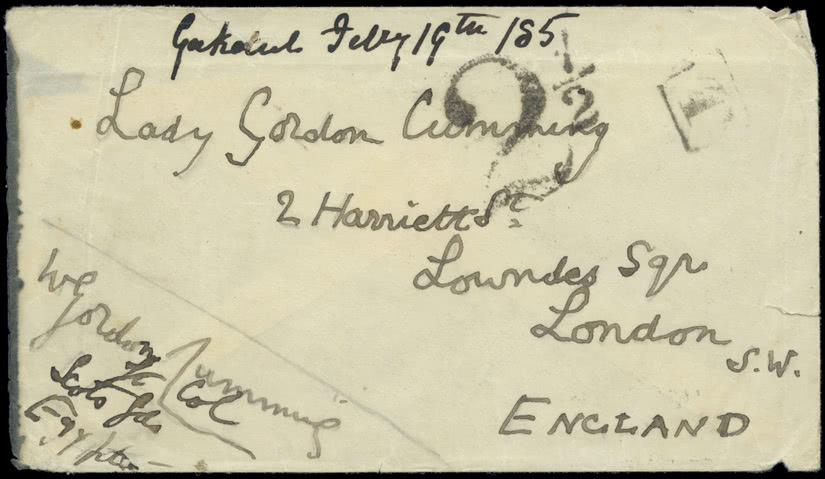 Gakdul Feby 19th 185
2 1/2
T
Lady Gordon Cumming
2 Harriett St
Lowndes Sqr
London
S.W.
ENGLAND
WG
Gordon Cumming
Lt Col
Scots Gds
Egypt